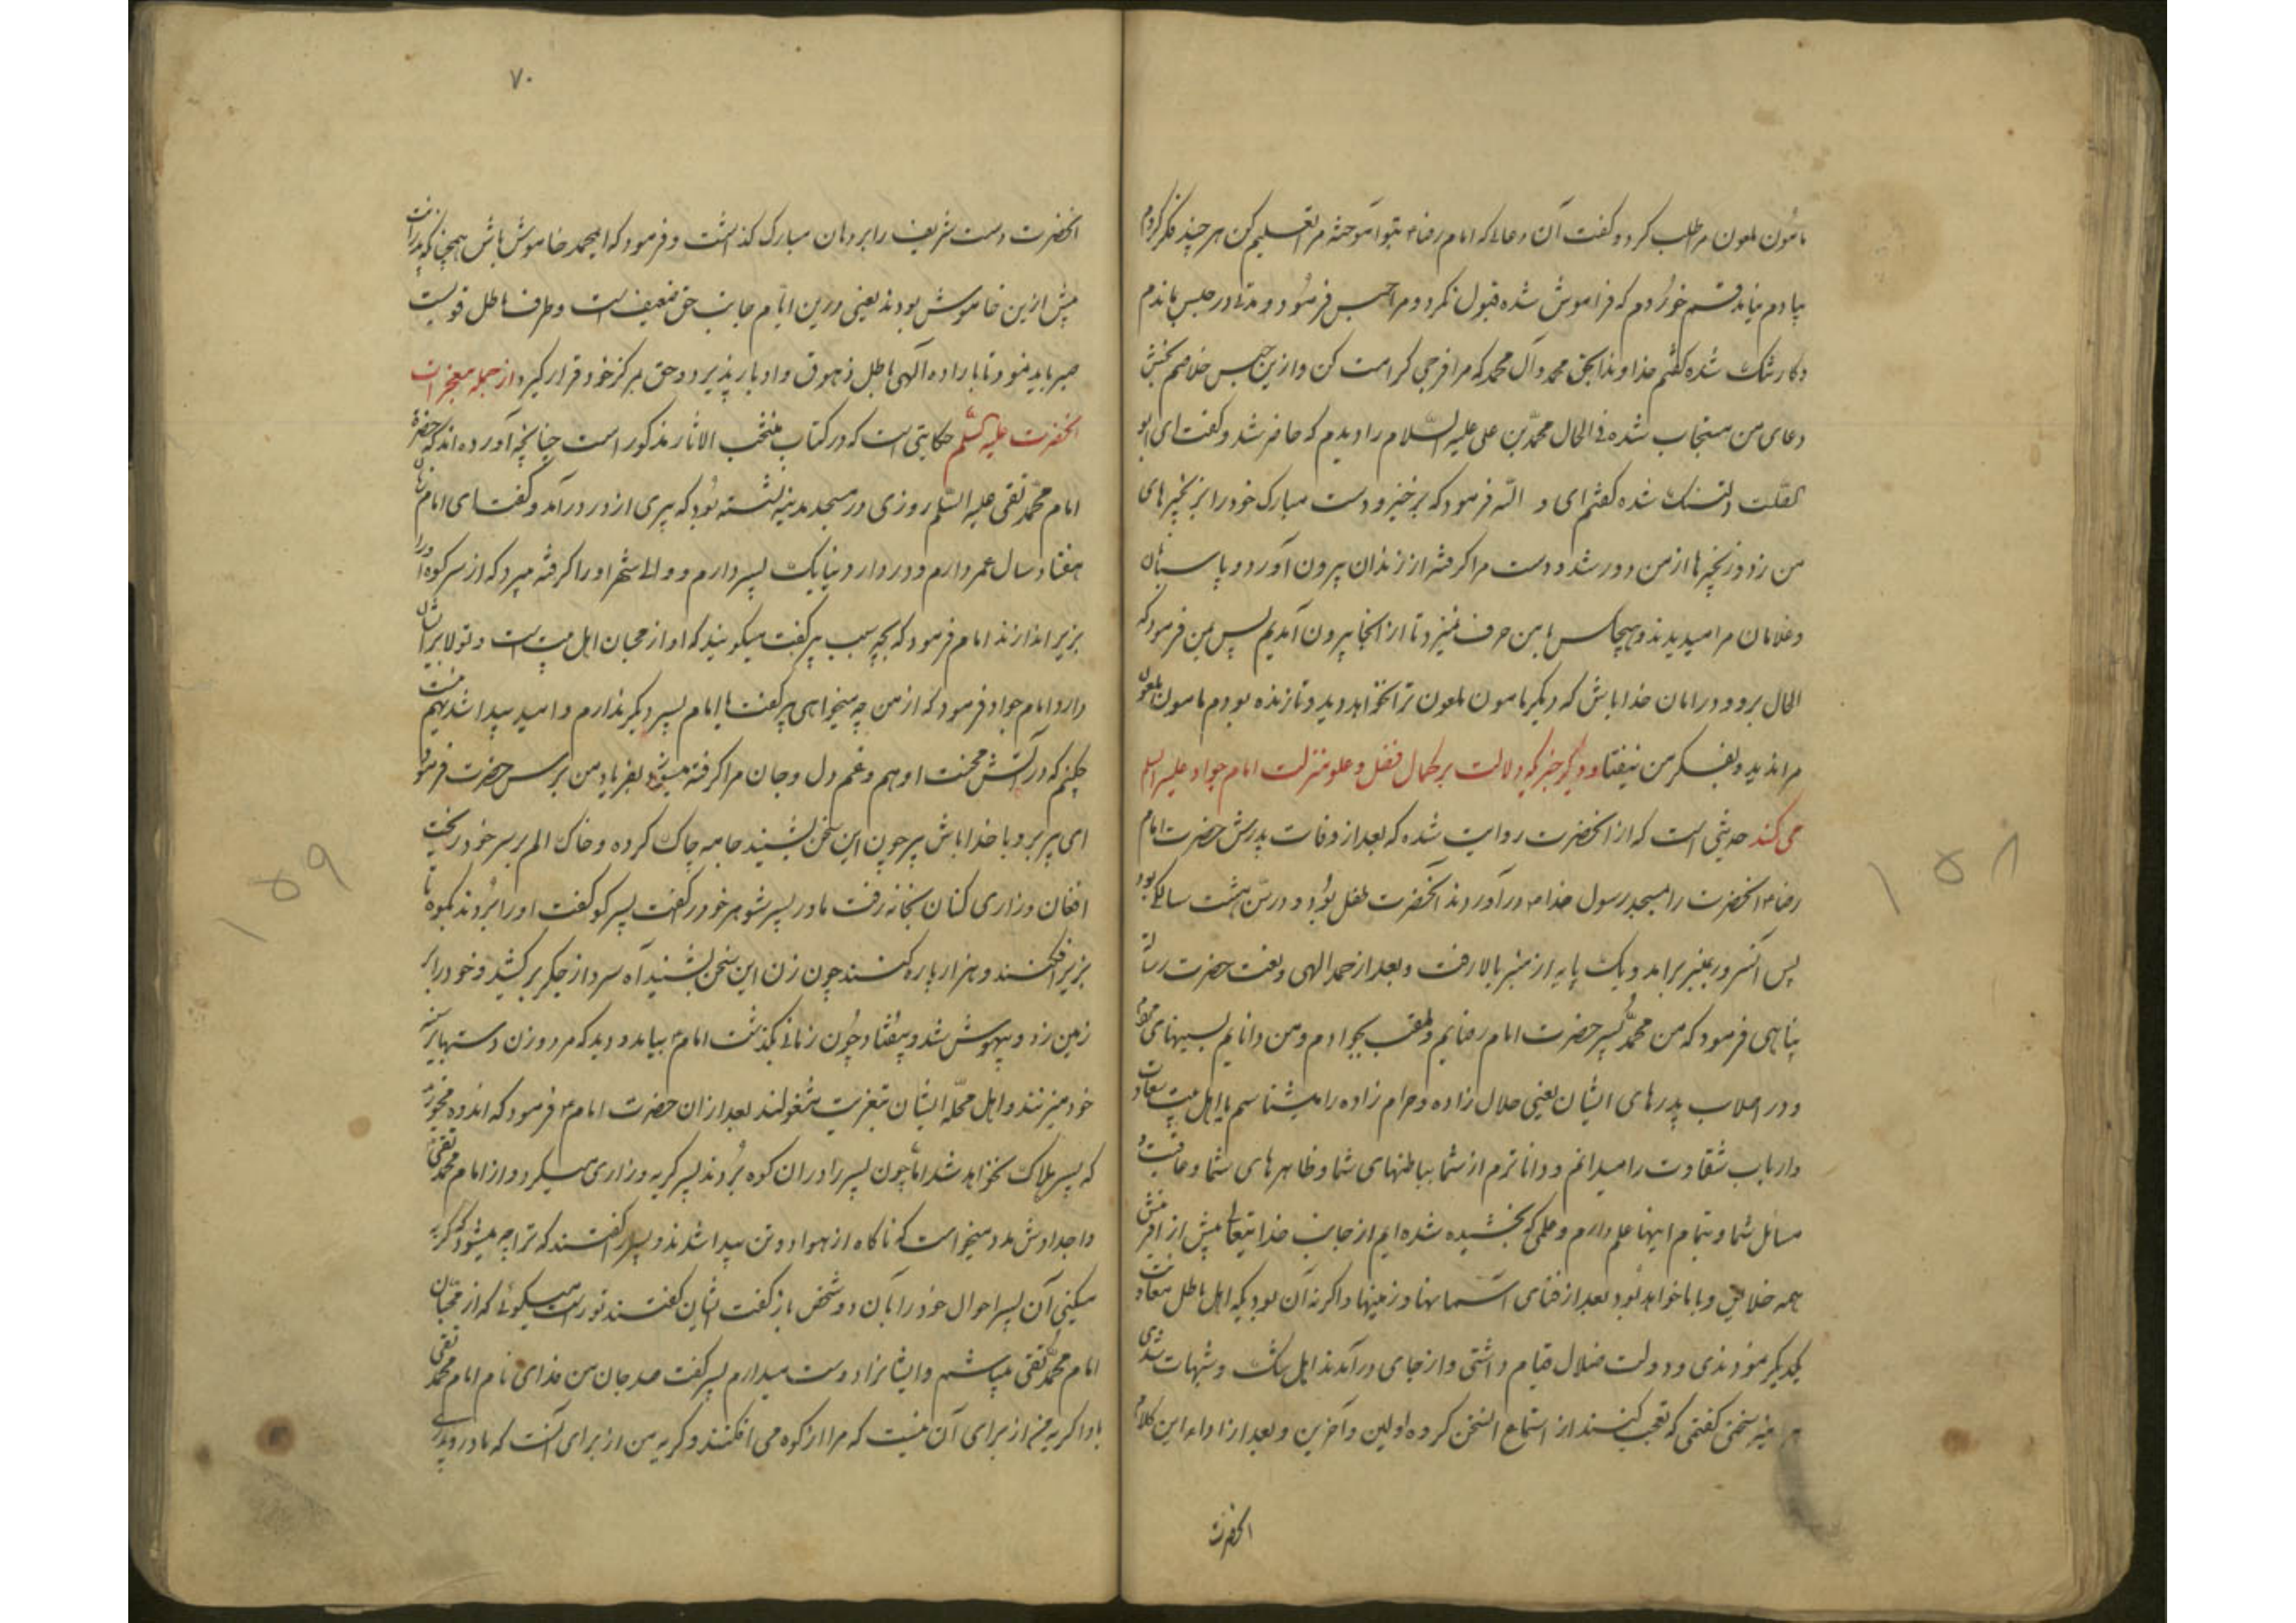 مامون ملعون مرا طلب کرد و کفت آن دعائی که امام رضا بتو آموخته مرا تعلیم کن هر چند فکر کردم
بیادم نیامد قسم خوردم که فراموش شده قبول نکرد و مرا حبس فرمود و مدتی در حبس بماندم
و کار تنک شده کفتم خداوندا بحق محمد و آل محمد که مرا فرجی کرامت کن و ازین حبس خلاصم بخش
دعای من مستجاب شده فی الحال محمد بن علی علیه السلام را دیدم که حاضر شد و کفت ای ابو
الصلت دلتنک شده کفتم ای و الله فرمود که برخیز و دست مبارک خود را بر زنجیرهای
من زد و زنجیرها از من دور شد و دست مرا کرفته از زندان بیرون آورد و پاسبانان
و غلامان مرا میدیدند و هیچکس با من حرف نمیزد تا از انجا بیرون آمدیم پس بمن فرمود که
الحال برو و در امان خدا باش که دیکر مامون ملعون ترا نخواهد دید و تا زنده بودم مامون ملعون
مرا ندید و بفکر من نیفتاد و دیکر خبر که دلالت بر کمال فضل و علو منزلت امام جواد علیه السلم
می کند حدیثی است که از انحضرت روایت شده که بعد از وفات پدرش حضرت امام
رضا انحضرت را بمسجد رسول خدا در آوردند آنحضرت طفل بود و در سن هشت سالکی بود
پس آنسرور بمنبر برامد و یک پایه از منبر بالا رفت و بعد از حمد الهی و نعت حضرت رسالت
پناهی فرمود که من محمد پسر حضرت امام رضایم و ملقب بجوادم و من دانایم بسیهنای
و در اصلاب پدرهای ایشان یعنی حلال زاده و حرام زاده را میشناسم با اهل بیت سعادت
و ارباب شقاوت را میدانم و داناترم از شما بباطنهای شما و ظاهرهای شما و عاقبت و
مسائل شما و بتمام اینها علم دارم و علمی که بخشیده شده ایم از جانب خدایتعالی پیش از آفرینش
همه خلایق و با ما خواهد بود بعد از فنای آسمانها و زمینها و اکر نه آن بودیکه اهل باطل معاونت
یکدیکر نمودندی و دولت ضلال قیام داشتی و از جای درآمدند اهل شک و شبهات شدی
هر آینه سخنی کفتمی که تعجب کنند از استماع آنسخن کروه اولین و آخرین و بعد از اداء این کلام
انحضرت
۷۰
انحضرت دست شریف را بر دهان مبارک کذاشت و فرمود که ای محمد خاموش باش همچنانکه پدرانت
پیش ازین خاموش بودند یعنی درین ایام جانب حق ضعیف است و طرف باطل قویست
صبر باید نمود تا باراده الهی باطل زهوق و ادبار پذیرد و حق بمرکز خود قرار کیرد و از جمله معجزات
انحضرت علیه السلم حکایتی است که در کتاب منتخب الاثار مذکور است چنانچه آورده اند که حضرة
امام محمد تقی علیه السلم روزی در مسجد مدینه نشسته بود که پیری از در درآمد و کفت ای امام
هفتاد سال عمر دارم و در دار دنیا یک پسر دارم و والی شهر او را کرفته میبرد که از سر کوه او را
بزیر اندازند امام فرمود که بچه سبب پیر کفت میکویند که او از محبان اهل بیت است و تولا برایشان
دارد امام جواد فرمود که از من چه میخواهی پیر کفت یا امام پسر دیکر ندارم و امید پیدا شدنهم نیست
چکنم که در آتش محنت او هم و غم دل و جان مرا کرفته میسوزد بفریاد من برس حضرت فرمود
ای پیر برو با خدا باش پیر چون این سخن بشنید جامه چاک کرده و خاک الم بر سر خود ریخت
افغان و زاری کنان بخانه رفت مادر پسر شوهر خود را کفت پسر کو کفت او را بردند بکوه تا
بزیر افکنند و هزار پاره کنند چون زن این سخن بشنید آه سرد از جکر بر کشید و خود را بر
زمین زد و بیهوش شد و بیفتاد چون زمانی بکذشت امام بیامد و دید که مرد و زن دستها بر سینه
خود میزنند و اهل محله ایشان بتعزیت مشغولند بعد از ان حضرت امام فرمود که اندوه مخورید
که پسر هلاک نخواهد شد اما چون پسر را در ان کوه بردند پسر کریه و زاری میکرد و از امام محمد تقی
و اجدادش مدد میخواست که ناکاه از هوا دو تن پیدا شدند و بپسر کفتند که ترا چه میشود که کریه
میکنی آن پسر احوال خود را بآن دو شخص باز کفت ایشان کفتند تو راست میکوئی که از محبان
امام محمد تقی میباشم و ایشانرا دوست میدارم پسر کفت صد جان من فدای نام امام محمد تقی
باد اکر کریه من از برای آن نیست که مرا از کوه می افکنند و کریه من از برای آنست که مادر و پدری
۱۵۸
۱۵۹